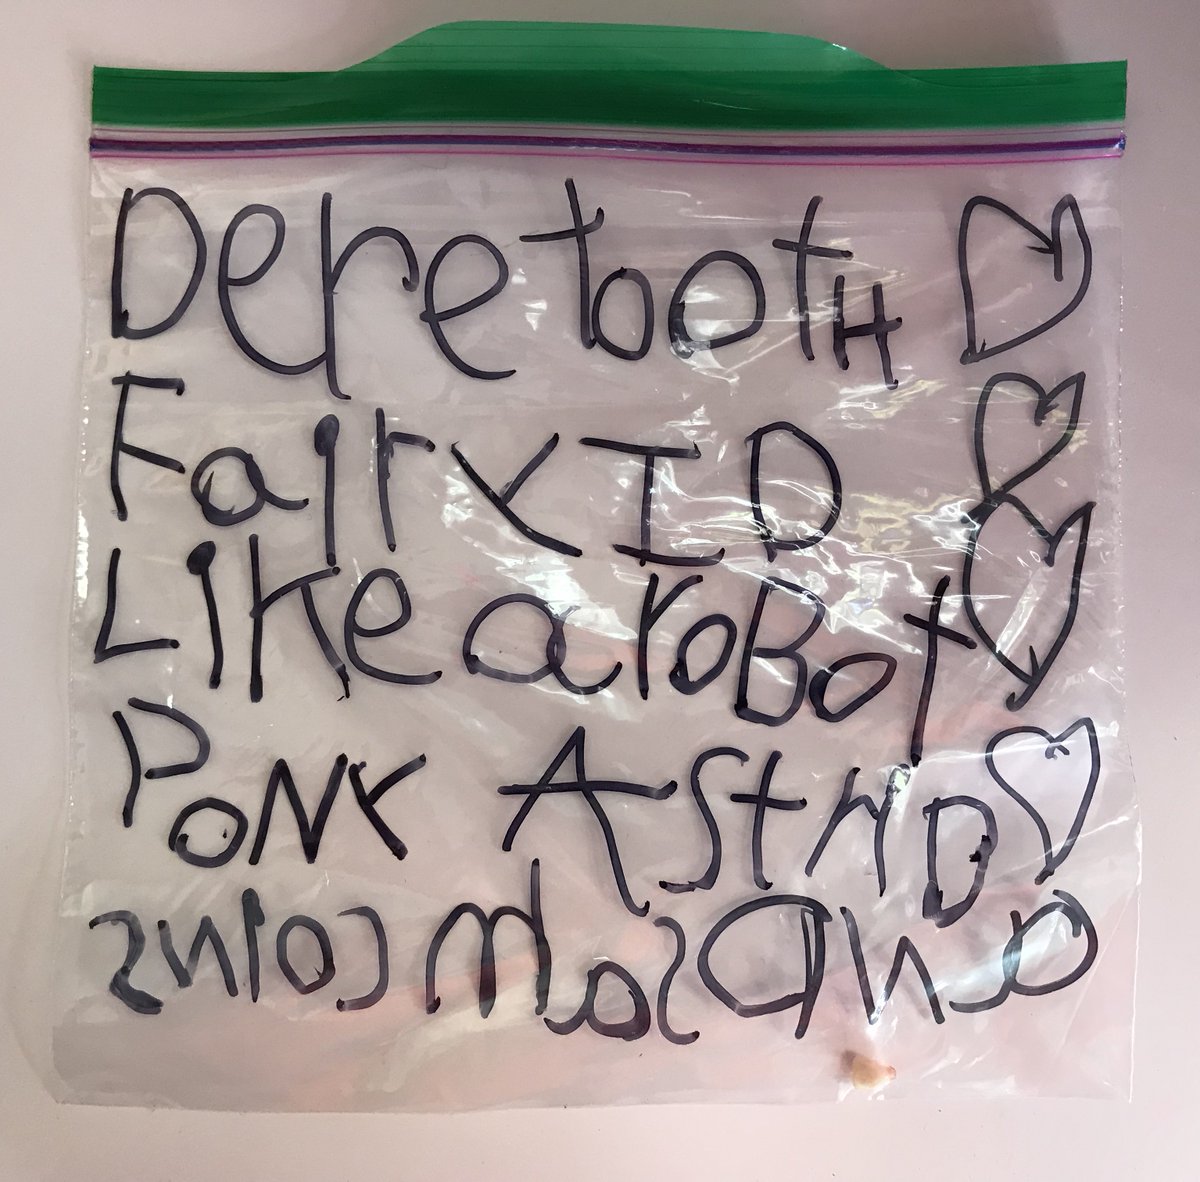 Dere tootH
FairY I D
Like a roBot
PoNK AStriD
anD Som coins